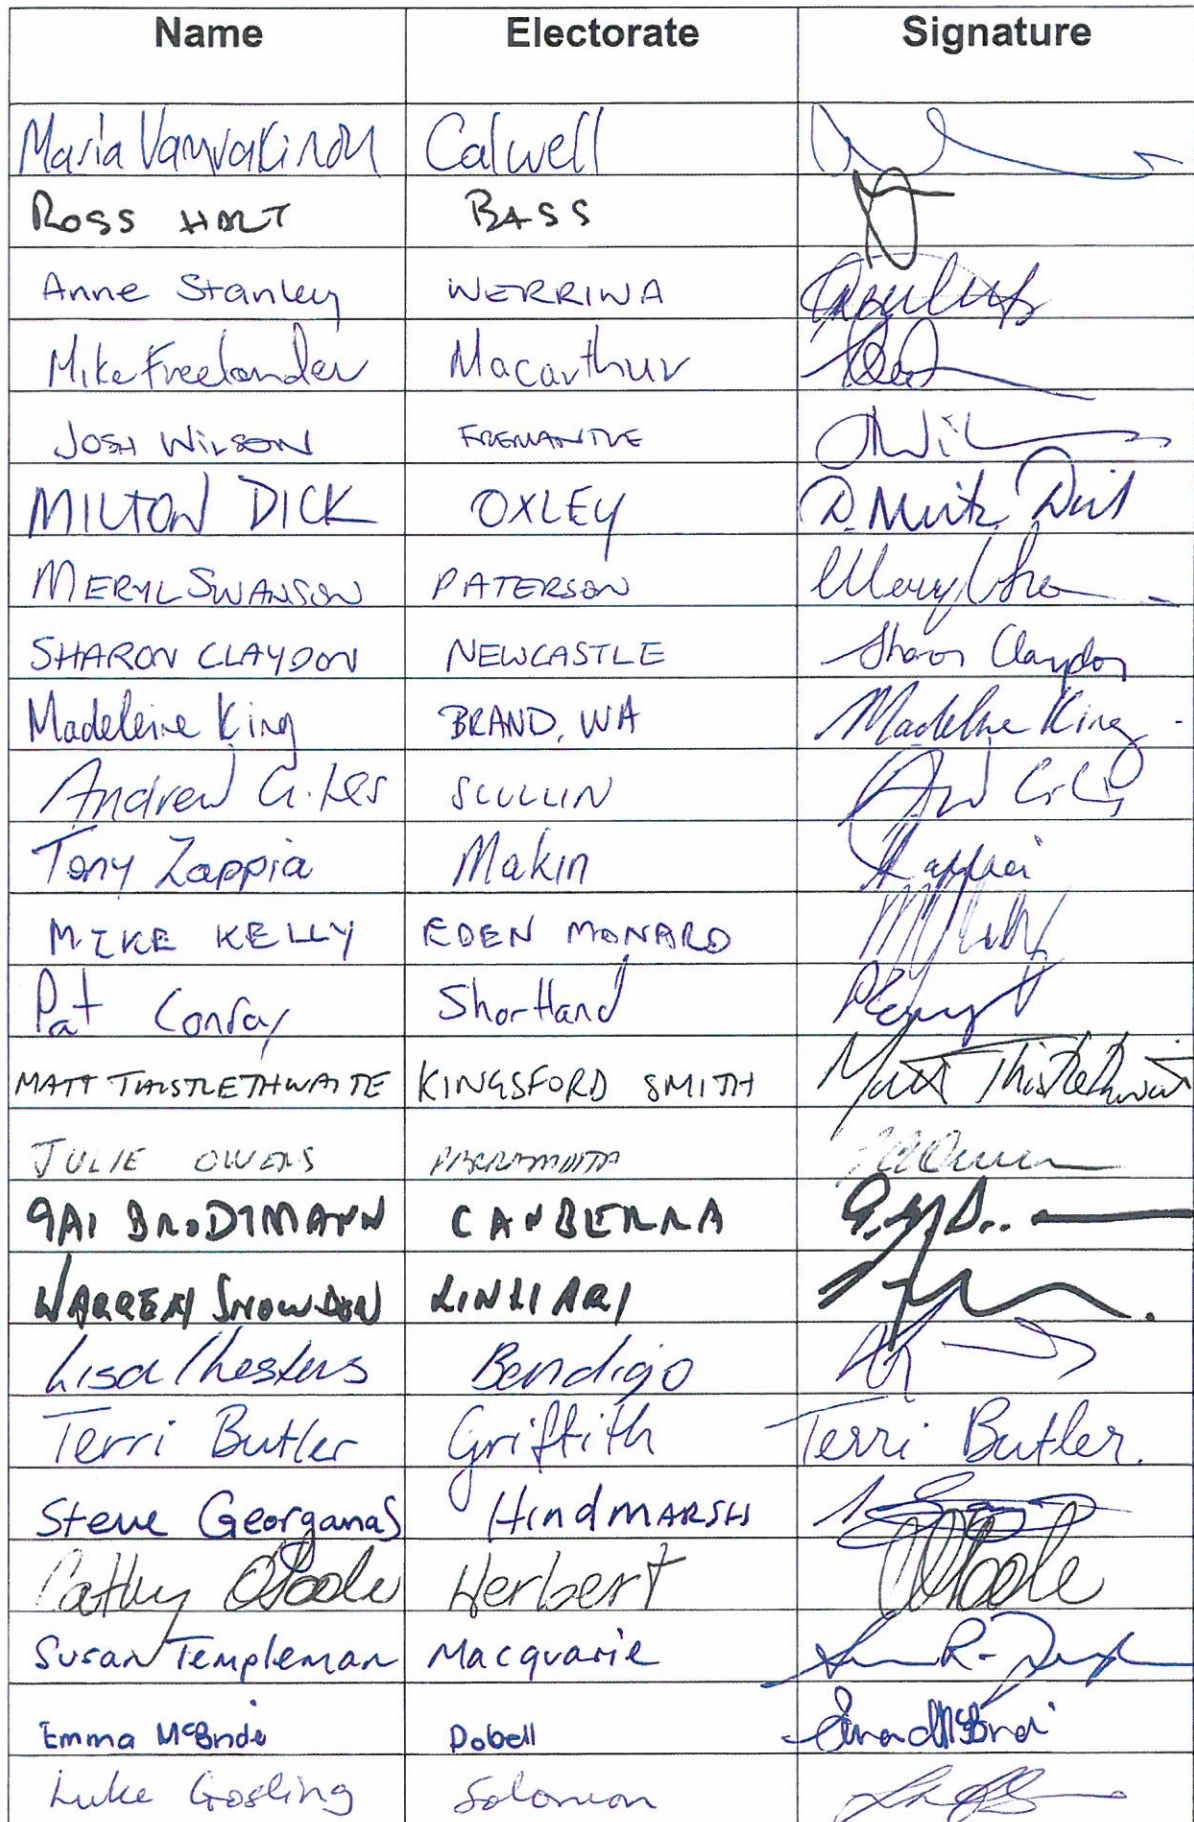 Name Electorate Signature
Maria Vamvakinou Calwell
Ross HART BASS
Anne Stanley WERRIWA
Mike Freelander Macarthur
JOSH WILSON FREMANTLE
MILTON DICK OXLEY D. Milton Dick
MERYL SWANSON PATERSON Meryl Swa
SHARON CLAYDON NEWCASTLE Sharon Claydon
Madeleine King BRAND, WA Madeleine King
Andrew Giles SCULLIN
Tony Zappia Makin Zappia
MIKE KELLY EDEN MONARO
Pat Conroy Shortland
MATT THISTLETHWAITE KINGSFORD SMITH Matt Thistlethwaite
JULIE OWENS PARRAMATTA
GAI BRODTMANN CANBERRA
WARREN SNOWDON LINGIARI
Lisa Chesters Bendigo
Terri Butler Griffith Terri Butler.
Steve Georganas HindMARSH
Cathy O'Toole Herbert O'Toole
Susan Templeman Macquarie
Emma McBride Dobell Emma McBride
Luke Gosling Solomon